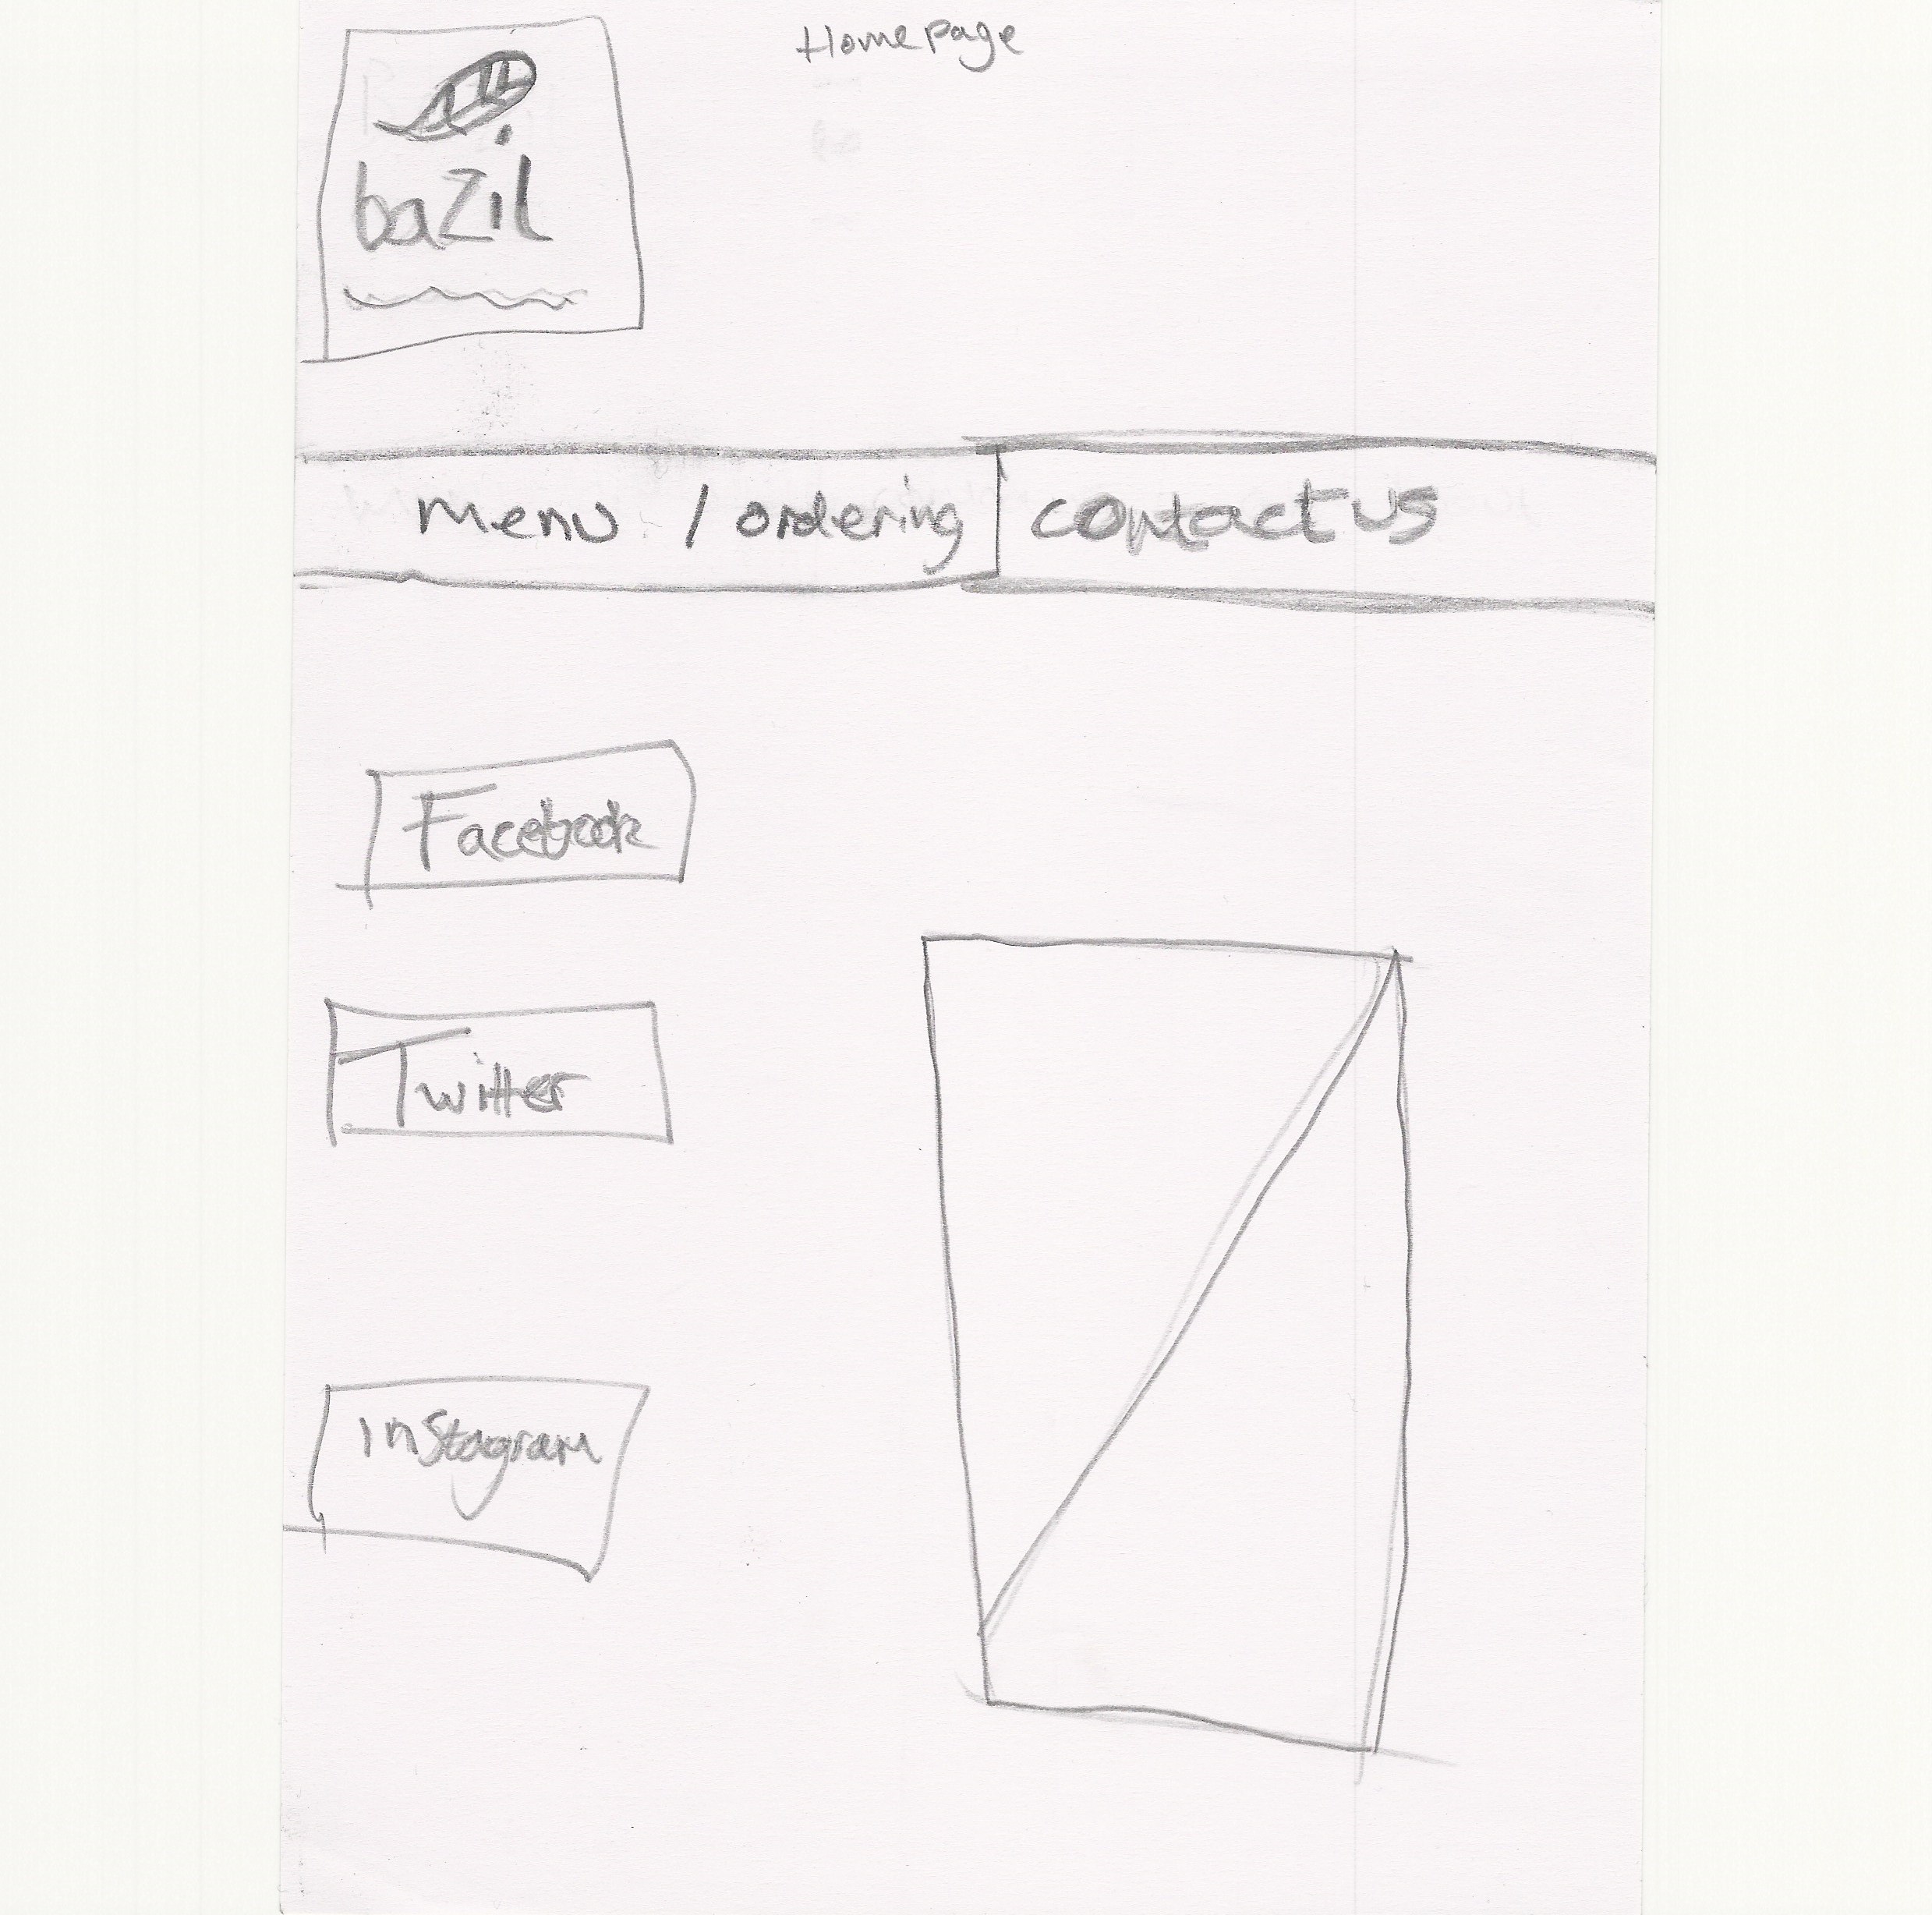 Homepage
bazil
menu / ordering contact us
Facebook
Twitter
instagram